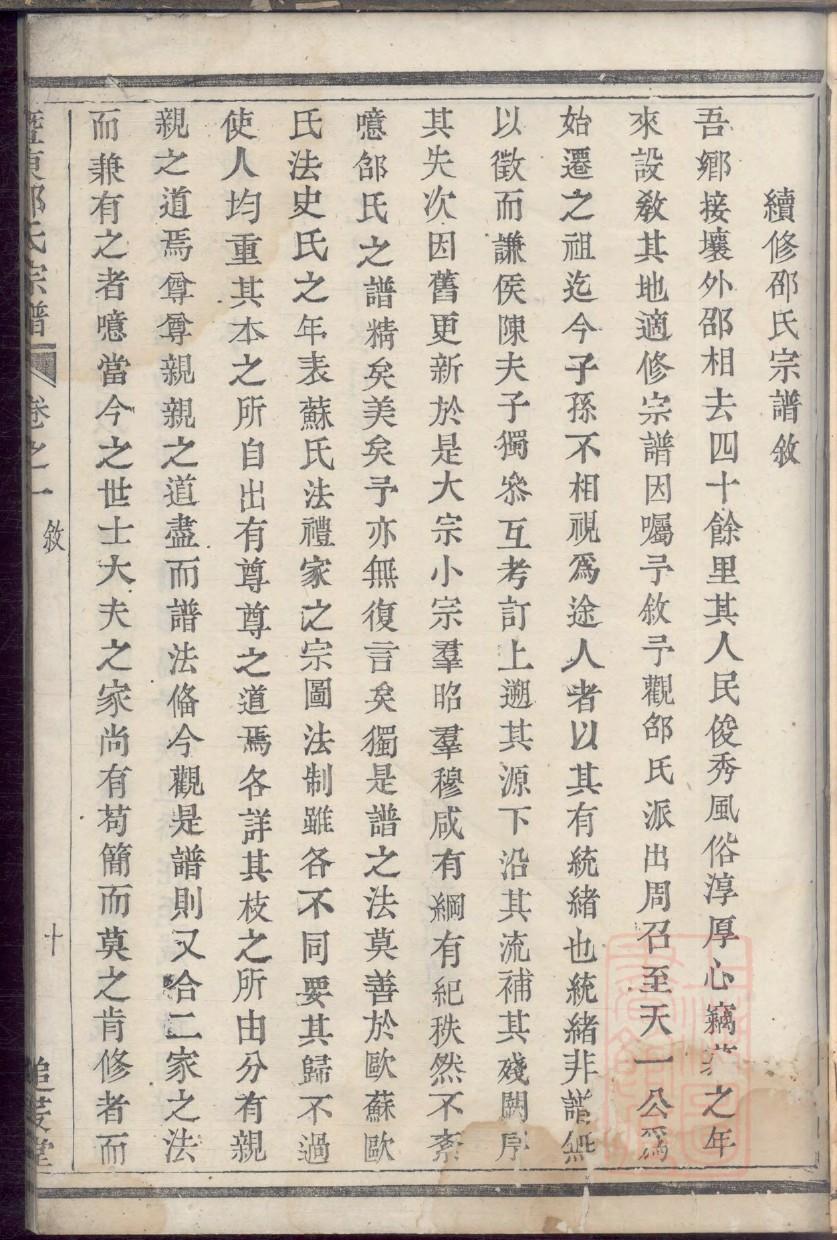 續修邵氏宗譜敘
吾鄉接壤外邵相去四十餘里其人民俊秀風俗淳厚心竊之年
來設教其地適修宗譜因囑予敘予觀邵氏派出周召至天一公爲
始遷之祖迄今子孫不相視爲途人者以其有統緒也統緒非譜無
以徵而謙侯陳夫子獨叅互考訂上遡其源下沿其流補其殘闕序
其失次因舊更新於是大宗小宗羣昭羣穆咸有綱有紀秩然不紊
噫邵氏之譜精矣美矣予亦無復言矣獨是譜之法莫善於歐蘇歐
氏法史氏之年表蘇氏法禮家之宗圖法制雖各不同要其歸不過
使人均重其本之所自出有尊尊之道焉各詳其枝之所由分有親
親之道焉尊尊親親之道盡而譜法俻今觀是譜則又合二家之法
而兼有之者噫當今之世士大夫之家尚有苟簡而莫之肯修者而
暨東邵氏宗譜
卷之一
敘
十
追慕堂